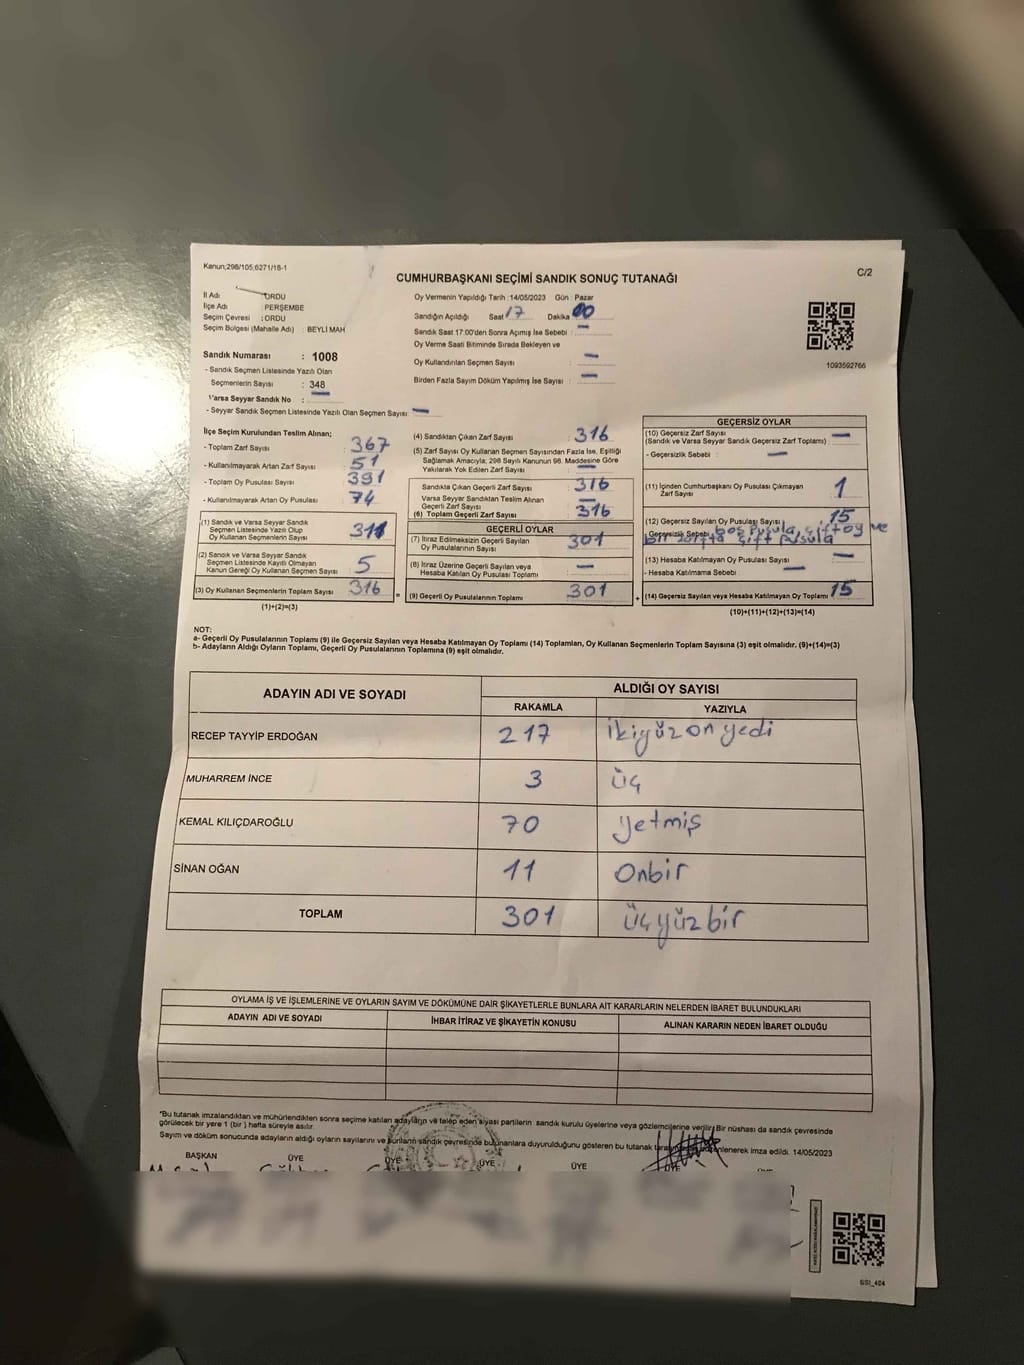 Kanun;298/105;6271/18-1
C/2
CUMHURBAŞKANI SEÇİMİ SANDIK SONUÇ TUTANAĞI
İl Adı ORDU
İlçe Adı : PERŞEMBE
Seçim Çevresi : ORDU
Seçim Bölgesi (Mahalle Adı) : BEYLİ MAH
Sandık Numarası : 1008
- Sandık Seçmen Listesinde Yazılı Olan
Seçmenlerin Sayısı : 348
Varsa Seyyar Sandık No :
- Seyyar Sandık Seçmen Listesinde Yazılı Olan Seçmen Sayısı: —
Oy Vermenin Yapıldığı Tarih :14/05/2023 Gün : Pazar
Sandığın Açıldığı Saat 17 Dakika 00
Sandık Saat 17:00'den Sonra Açılmış İse Sebebi : —
Oy Verme Saati Bitiminde Sırada Bekleyen ve
Oy Kullandırılan Seçmen Sayısı : —
Birden Fazla Sayım Döküm Yapılmış İse Sayısı : —
1093592766
İlçe Seçim Kurulundan Teslim Alınan;
- Toplam Zarf Sayısı : 367
- Kullanılmayarak Artan Zarf Sayısı : 51
- Toplam Oy Pusulası Sayısı : 391
- Kullanılmayarak Artan Oy Pusulası : 74
(1) Sandık ve Varsa Seyyar Sandık
Seçmen Listesinde Yazılı Olup
Oy Kullanan Seçmenlerin Sayısı : 311
(2) Sandık ve Varsa Seyyar Sandık
Seçmen Listesinde Kayıtlı Olmayan
Kanun Gereği Oy Kullanan Seçmen Sayısı : 5
(3) Oy Kullanan Seçmenlerin Toplam Sayısı : 316
(1)+(2)=(3)
(4) Sandıktan Çıkan Zarf Sayısı : 316
(5) Zarf Sayısı Oy Kullanan Seçmen Sayısından Fazla İse, Eşitliği
Sağlamak Amacıyla; 298 Sayılı Kanunun 98. Maddesine Göre
Yakılarak Yok Edilen Zarf Sayısı : —
Sandıkta Çıkan Geçerli Zarf Sayısı : 316
Varsa Seyyar Sandıktan Teslim Alınan
Geçerli Zarf Sayısı : —
(6) Toplam Geçerli Zarf Sayısı : 316
GEÇERLİ OYLAR
(7) İtiraz Edilmeksizin Geçerli Sayılan
Oy Pusulalarının Sayısı : 301
(8) İtiraz Üzerine Geçerli Sayılan veya
Hesaba Katılan Oy Pusulası Toplamı : —
(9) Geçerli Oy Pusulalarının Toplamı : 301
GEÇERSİZ OYLAR
(10) Geçersiz Zarf Sayısı
(Sandık ve Varsa Seyyar Sandık Geçersiz Zarf Toplamı) : —
- Geçersizlik Sebebi : —
(11) İçinden Cumhurbaşkanı Oy Pusulası Çıkmayan
Zarf Sayısı : 1
(12) Geçersiz Sayılan Oy Pusulası Sayısı : 15
- Geçersizlik Sebebi boş pusula, çift oy ve
bir zarfta çift pusula
(13) Hesaba Katılmayan Oy Pusulası Sayısı : —
- Hesaba Katılmama Sebebi :
(14) Geçersiz Sayılan veya Hesaba Katılmayan Oy Toplamı : 15
(10)+(11)+(12)+(13)=(14)
NOT:
a- Geçerli Oy Pusulalarının Toplamı (9) ile Geçersiz Sayılan veya Hesaba Katılmayan Oy Toplamı (14) Toplamları, Oy Kullanan Seçmenlerin Toplam Sayısına (3) eşit olmalıdır. (9)+(14)=(3)
b- Adayların Aldığı Oyların Toplamı, Geçerli Oy Pusulalarının Toplamına (9) eşit olmalıdır.
ADAYIN ADI VE SOYADI
ALDIĞI OY SAYISI
RAKAMLA YAZIYLA
RECEP TAYYİP ERDOĞAN 217 ikiyüzonyedi
MUHARREM İNCE 3 üç
KEMAL KILIÇDAROĞLU 70 yetmiş
SİNAN OĞAN 11 Onbir
TOPLAM 301 üçyüzbir
OYLAMA İŞ VE İŞLEMLERİNE VE OYLARIN SAYIM VE DÖKÜMÜNE DAİR ŞİKAYETLERLE BUNLARA AİT KARARLARIN NELERDEN İBARET BULUNDUKLARI
ADAYIN ADI VE SOYADI İHBAR İTİRAZ VE ŞİKAYETİN KONUSU ALINAN KARARIN NEDEN İBARET OLDUĞU
*Bu tutanak imzalandıktan ve mühürlendikten sonra seçime katılan adayların ve talep eden siyasi partilerin sandık kurulu üyelerine veya gözlemcilerine verilir. Bir nüshası da sandık çevresinde
görülecek bir yere 1 (bir) hafta süreyle asılır.
Sayım ve döküm sonucunda adayların aldığı oyların sayılarını ve bunların sandık çevresinde bulunanlara duyurulduğunu gösteren bu tutanak düzenlenerek imza edildi. 14/05/2023
BAŞKAN ÜYE ÜYE ÜYE ÜYE ÜYE
SSI_404